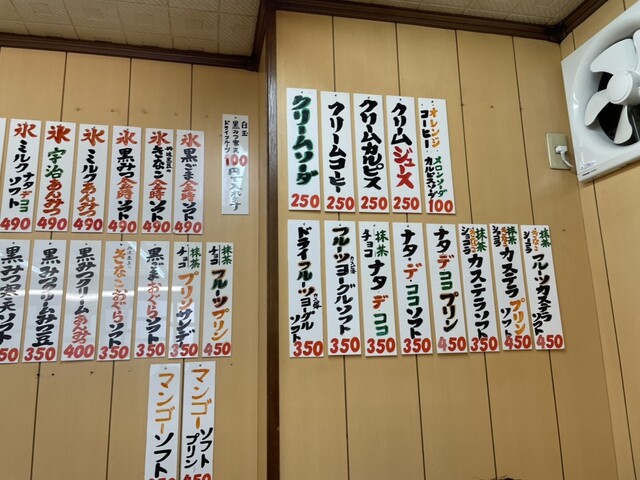 氷 ミルク ナタデココ ソフト 490
氷 宇治あんみつ 490
氷 ミルクあんみつ 490
氷 黒みつ金時ソフト 490
氷 きなこ金時ソフト 490
氷 黒ごま金時ソフト 490
白玉
黒みつ寒天
ドライフルーツ
100円
黒みつ寒天ソフト 350
黒みつクリーム白豆 350
黒みつクリームあんみつ 400
きなこおぐらソフト 350
黒ごまおぐらソフト 350
抹茶 チョコ プリンサンデー 350
抹茶 チョコ フルーツプリン 450
マンゴーソフト 350
マンゴー ソフト プリン 450
クリームソーダ 250
クリームコーヒー 250
クリームカルピス 250
クリームジュース 250
オレンジ メロンソーダ
コーヒー カルピスソーダ
100
ドライフルーツヨーグルソフト 350
フルーツヨーグルソフト 350
抹茶 チョコ ナタデココ 350
ナタ・デ・ココソフト 350
ナタ・デ・ココプリン 450
抹茶 ショコラ カステラソフト 350
抹茶 ショコラ カステラプリンソフト 450
抹茶 ショコラ フルーツカステラソフト 450